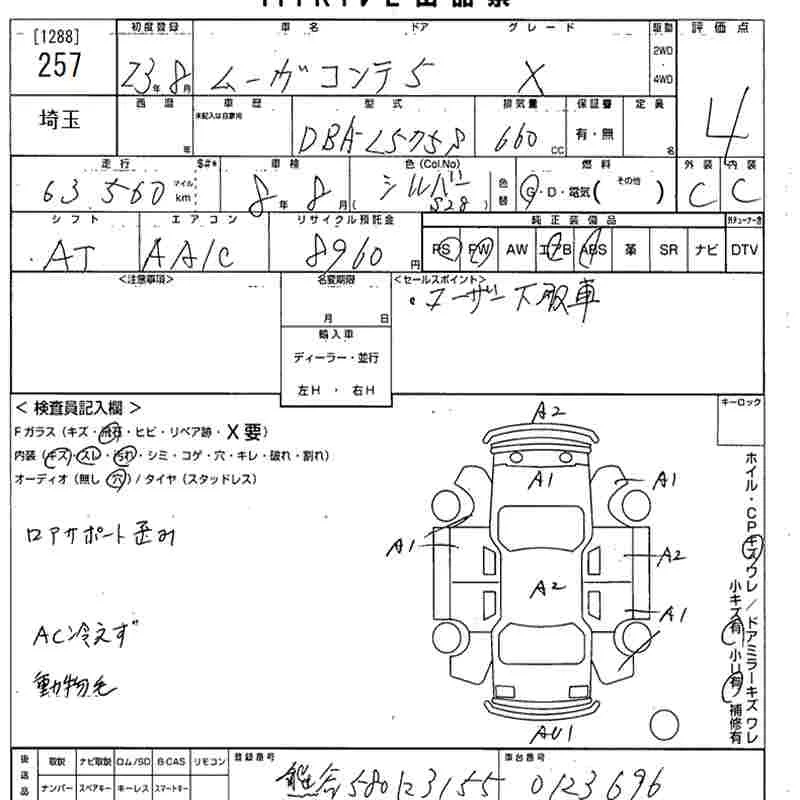 [1288]
257
初度登録 車名 ドア グレード 駆動 評価点
23年8月 ムーヴコンテ 5 X 2WD 4WD 4
埼玉
西暦 年 車歴 未記入は自家用 型式 排気量 保証書 定員
DBA-L575S 660 CC 有・無 名
走行 $#* 車検 色(Col.No) 燃料 外装 内装
63,560 マイル km 8年8月 シルバー S28 色替 G・D・電気( その他 ) C C
シフト エアコン リサイクル預託金 純正装備品
AT AA/C 8960円 PS PW AW エアB ABS 革 SR ナビ DTV
<注意事項> 名変期限 <セールスポイント>
月 日
・ユーザー下取車
輸入車
ディーラー・並行
左H ・ 右H
<検査員記入欄> キーロック
Fガラス(キズ・飛石・ヒビ・リペア跡・X要)
内装(キズ・スレ・汚れ・シミ・コゲ・穴・キレ・破れ・割れ)
オーディオ(無し 穴)/タイヤ(スタッドレス)
A2
A1
A1
A1
A2
A2
A1
AU1
ロアサポート歪み
AC冷えず
動物毛
ホイル・CPキズワレ/ドアミラーキズワレ
小キズ有 小U有 補修有
後送品 取説 ナビ取説 ロム/SD B-CAS リモコン
ナンバー スペアキー キーレス スマートキー
登録番号 580 車台番号 0123696